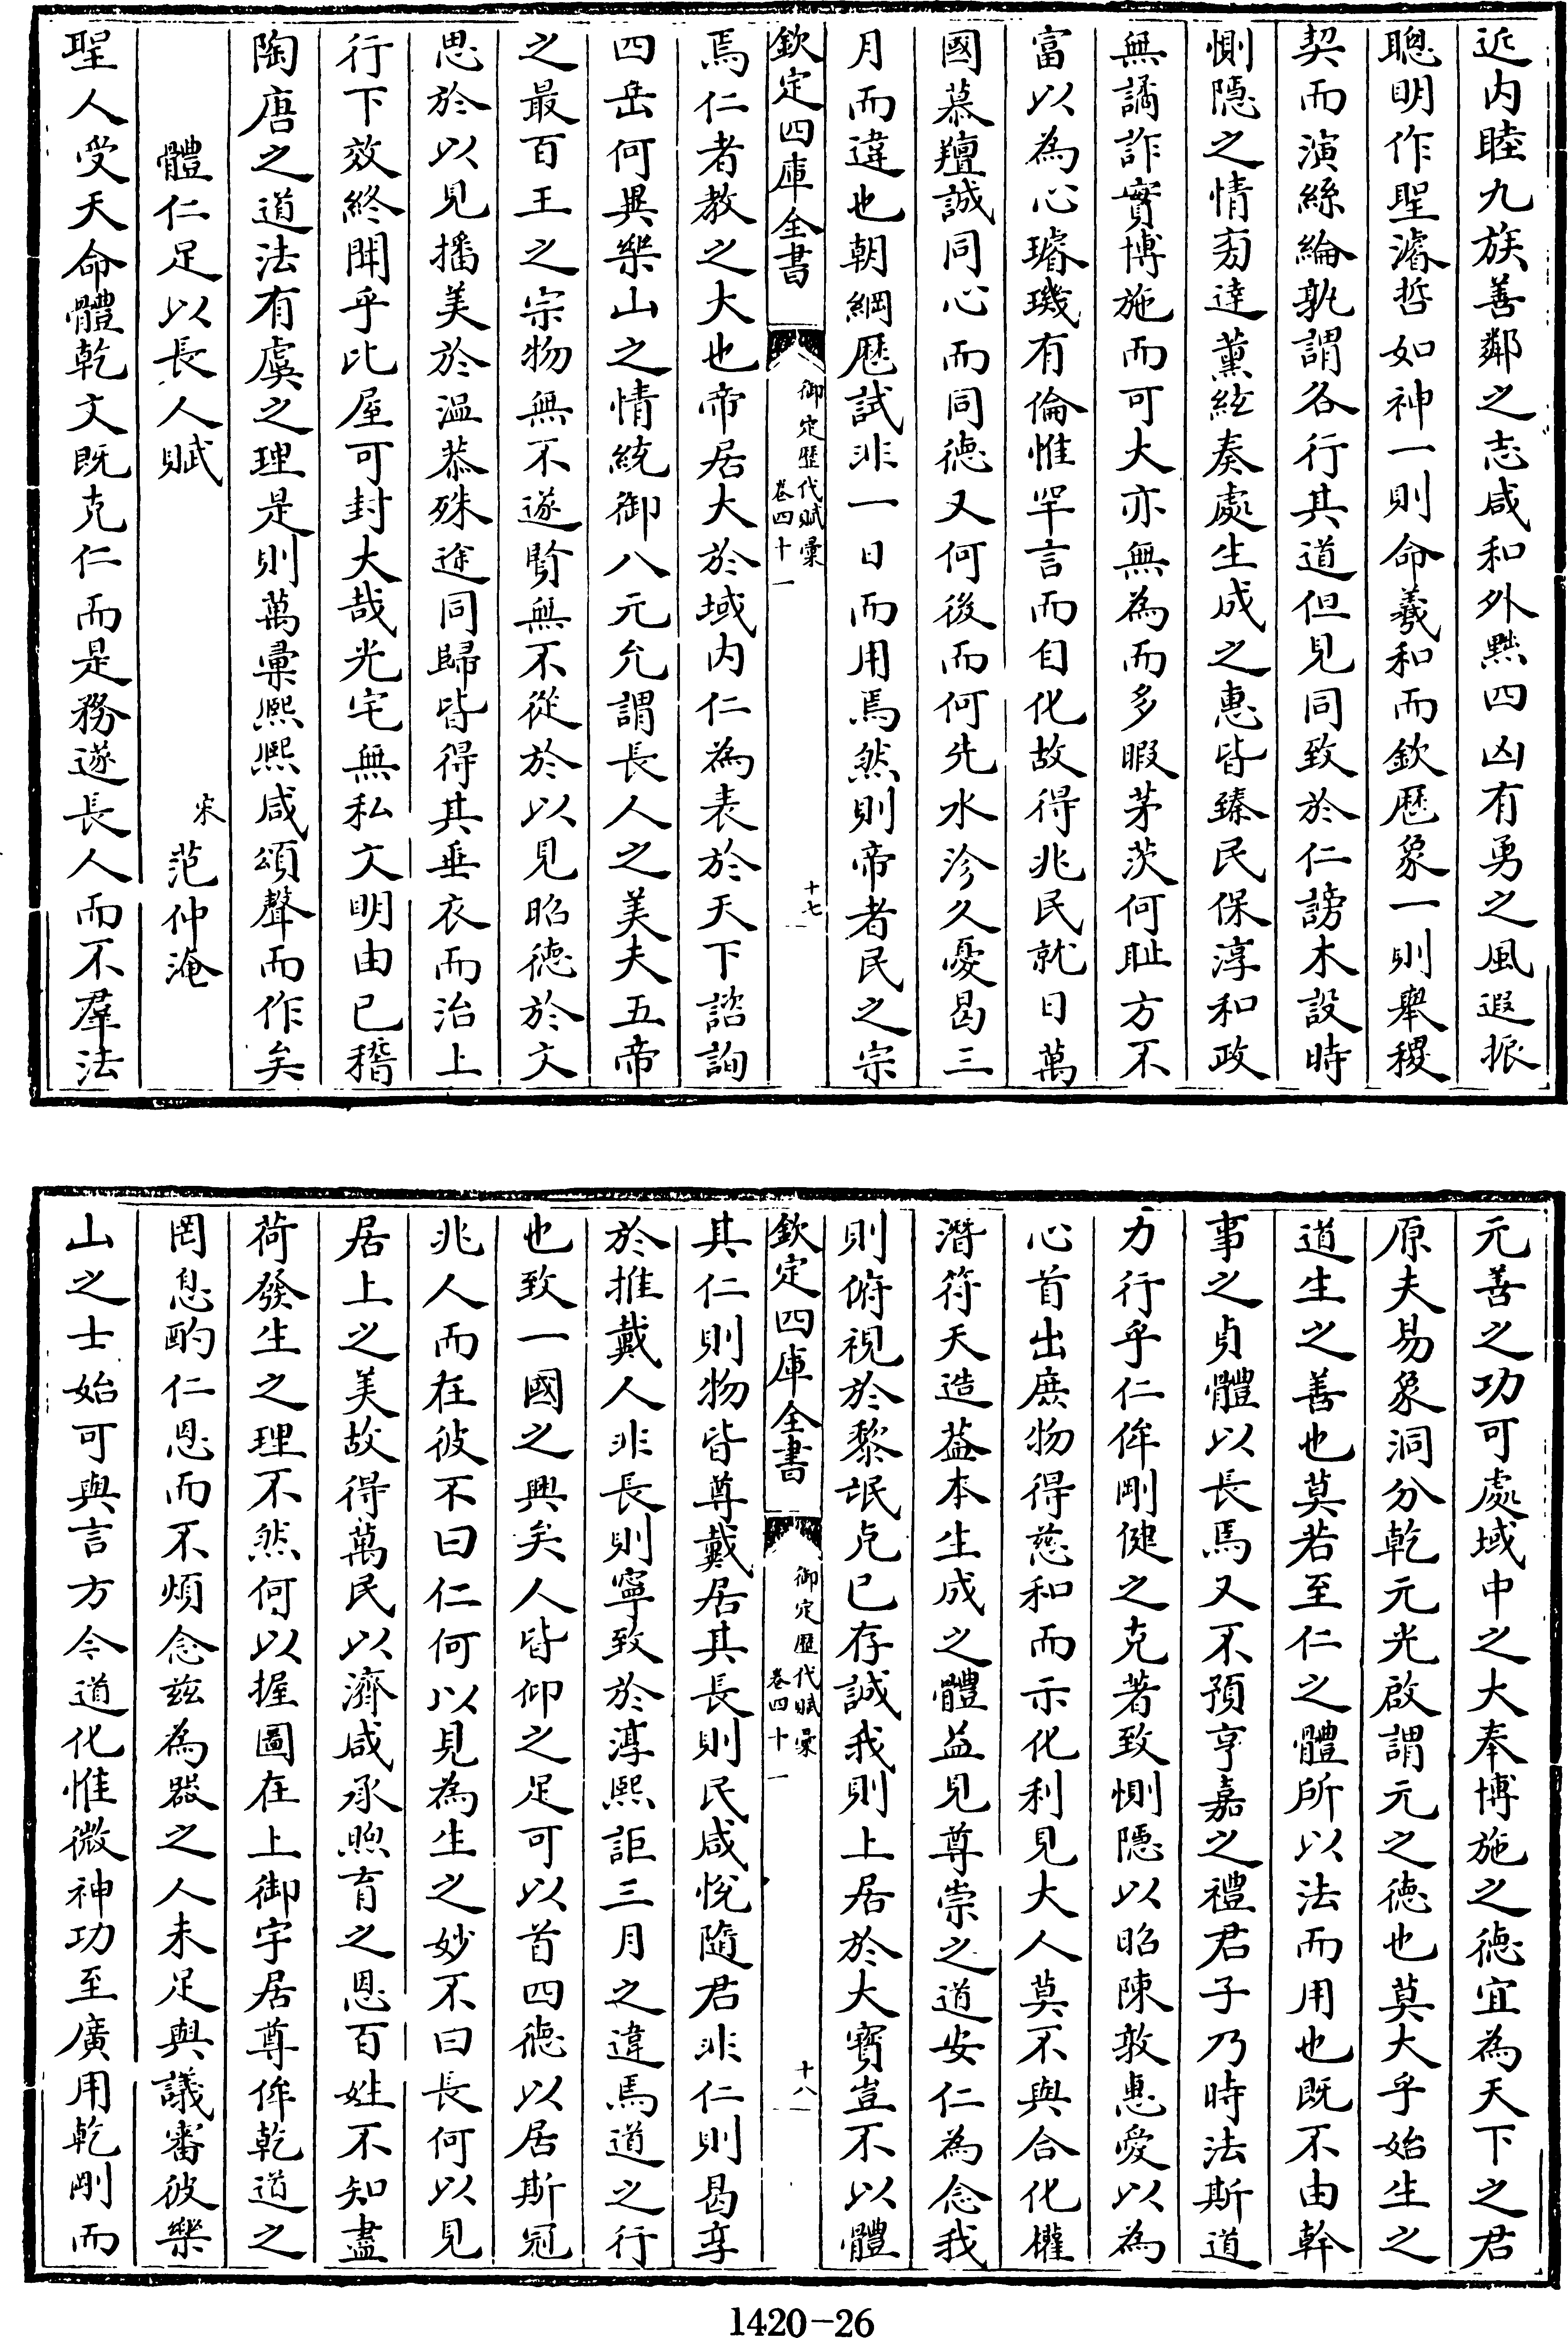 近内睦九族善鄰之志咸和外黜四凶有勇之風遐振
聰明作聖濬哲如神一則命羲和而欽厯象一則舉稷
契而演絲綸孰謂各行其道但見同致於仁謗木設時
惻隱之情旁達薫絃奏處生成之惠皆臻民保淳和政
無譎詐實博施而可大亦無為而多暇茅茨何耻方不
富以為心璿璣有倫惟罕言而自化故得兆民就日萬
國慕羶誠同心而同德又何後而何先水沴久憂曷三
月而違也朝綱厯試非一日而用焉然則帝者民之宗
欽定四庫全書
御定歴代賦彙
卷四十一
十七
焉仁者教之大也帝居大於域内仁為表於天下諮詢
四岳何異樂山之情統御八元允謂長人之美夫五帝
之最百王之宗物無不遂賢無不從於以見昭德於文
思於以見播美於温恭殊途同歸皆得其垂衣而治上
行下效終聞乎比屋可封大哉光宅無私文明由已稽
陶唐之道法有虞之理是則萬彙熙熙咸頌聲而作矣
體仁足以長人賦
宋
范仲淹
聖人受天命體乾文既克仁而是務遂長人而不羣法
元善之功可處域中之大奉博施之德宜為天下之君
原夫易象洞分乾元光啟謂元之德也莫大乎始生之
道生之善也莫若至仁之體所以法而用也既不由幹
事之貞體以長焉又不預亨嘉之禮君子乃時法斯道
力行乎仁侔剛健之克著致惻隱以昭陳敦惠愛以為
心首出庶物得慈和而示化利見大人莫不與合化權
潛符天造葢本生成之體益見尊崇之道安仁為念我
則俯視於黎氓克已存誠我則上居於大寳豈不以體
欽定四庫全書
御定歴代賦彙
卷四十一
十八
其仁則物皆尊戴居其長則民咸悅隨君非仁則曷孚
於推戴人非長則寧致於淳熙詎三月之違焉道之行
也致一國之興矣人皆仰之足可以首四德以居斯冠
兆人而在彼不曰仁何以見為生之妙不曰長何以見
居上之美故得萬民以濟咸承煦育之恩百姓不知盡
荷發生之理不然何以握圖在上御宇居尊侔乾道之
罔息酌仁恩而不煩念兹為器之人未足與議審彼樂
山之士始可與言方今道化惟微神功至廣用乾剛而
1420-26